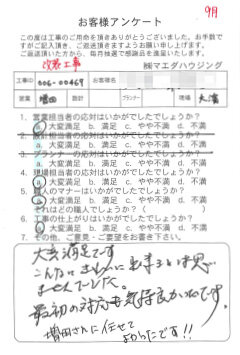 9月
お客様アンケート
この度は工事のご用命を頂きありがとうございました。お手数で
すがご記入頂き、ご返送頂きますようお願い申し上げます。
ご返送頂いた方から、毎月抽選で感謝品を進呈致します。
改装工事 ㈱マエダハウジング
工事ID 006-00469 お客様名
営業 増田 設計 プランナー 現場 大濱
1. 営業担当者の応対はいかがでしたでしょうか？
a. 大変満足 b. 満足 c. やや不満 d. 不満
2. 設計担当者の応対はいかがでしたでしょうか？
a. 大変満足 b. 満足 c. やや不満 d. 不満
3. プランナーの応対はいかがでしたでしょうか？
a. 大変満足 b. 満足 c. やや不満 d. 不満
4. 現場担当者の応対はいかがでしたでしょうか？
a. 大変満足 b. 満足 c. やや不満 d. 不満
5. 職人のマナーはいかがでしたでしょうか？
a. 大変満足 b. 満足 c. やや不満 d. 不満
それはどの職人でしょうか？（ ）
6. 工事の仕上がりはいかがでしたでしょうか？
a. 大変満足 b. 満足 c. やや不満 d. 不満
7. その他、ご意見・ご要望をお書き下さい。
大変満足です
こんなにきれいに出来るとは思い
ませんでした。
最初の対応も気持良かったです。
増田さんに任せて
よかったです!!